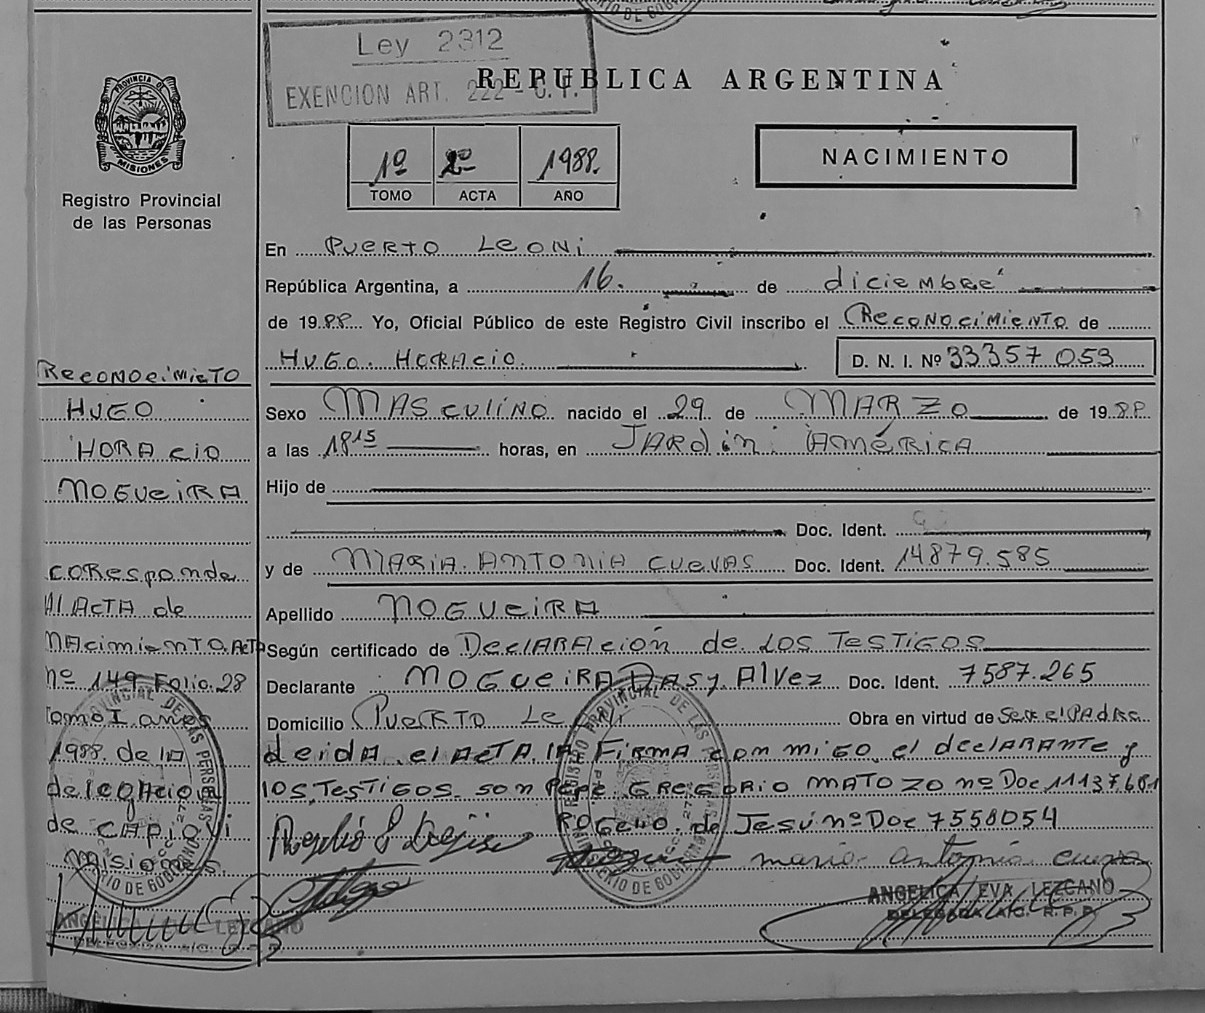 Ley 2312
EXENCION ART. 222 - C.F.
REPUBLICA ARGENTINA
PROVINCIA DE MISIONES
Registro Provincial
de las Personas
1º 2º 1988.
TOMO ACTA AÑO
NACIMIENTO
En PUERTO LEONI
República Argentina, a 16. de diciembre
de 1988 Yo, Oficial Público de este Registro Civil inscribo el RECONOCIMIENTO de
HUGO. HORACIO. D. N. I. Nº 33357 053
Sexo MASCULINO nacido el 29 de MARZO de 1988
a las 18 15 horas, en JARdin AMÉRICA
Hijo de
Doc. Ident.
y de MARIA. ANTONIA CUEVAS Doc. Ident. 14879.585
Apellido NOGUEIRA
Según certificado de DeclARAción de LOS TesTigos
Declarante NOGUEIRA DASy. AlVez Doc. Ident. 7587.265
Domicilio PUERTO LeoNi Obra en virtud de Ser el PAdRe
Leida el ACTA lA FIRMA con migo el declARANTe y
los TesTigos son PePe GREGORIO MATOZO nº Doc
ROGELIO de Jesú nº Doc 7558054
maria antonia cuevas
ANGELICA EVA LEZCANO
DELEGADA A/C. R.P.P.
Reconocimieto
HUGO
HORAcio
NOGUeiRA
CORResponde
Al ACTA de
NAcimienTO. AcTA
nº 149 Folio. 28
Tomo I años
1988. de lA
delegAcion
de CAPioVi
Misiones.
ANGELICA LEZCANO
DELEGADA A/C. R.P.P.